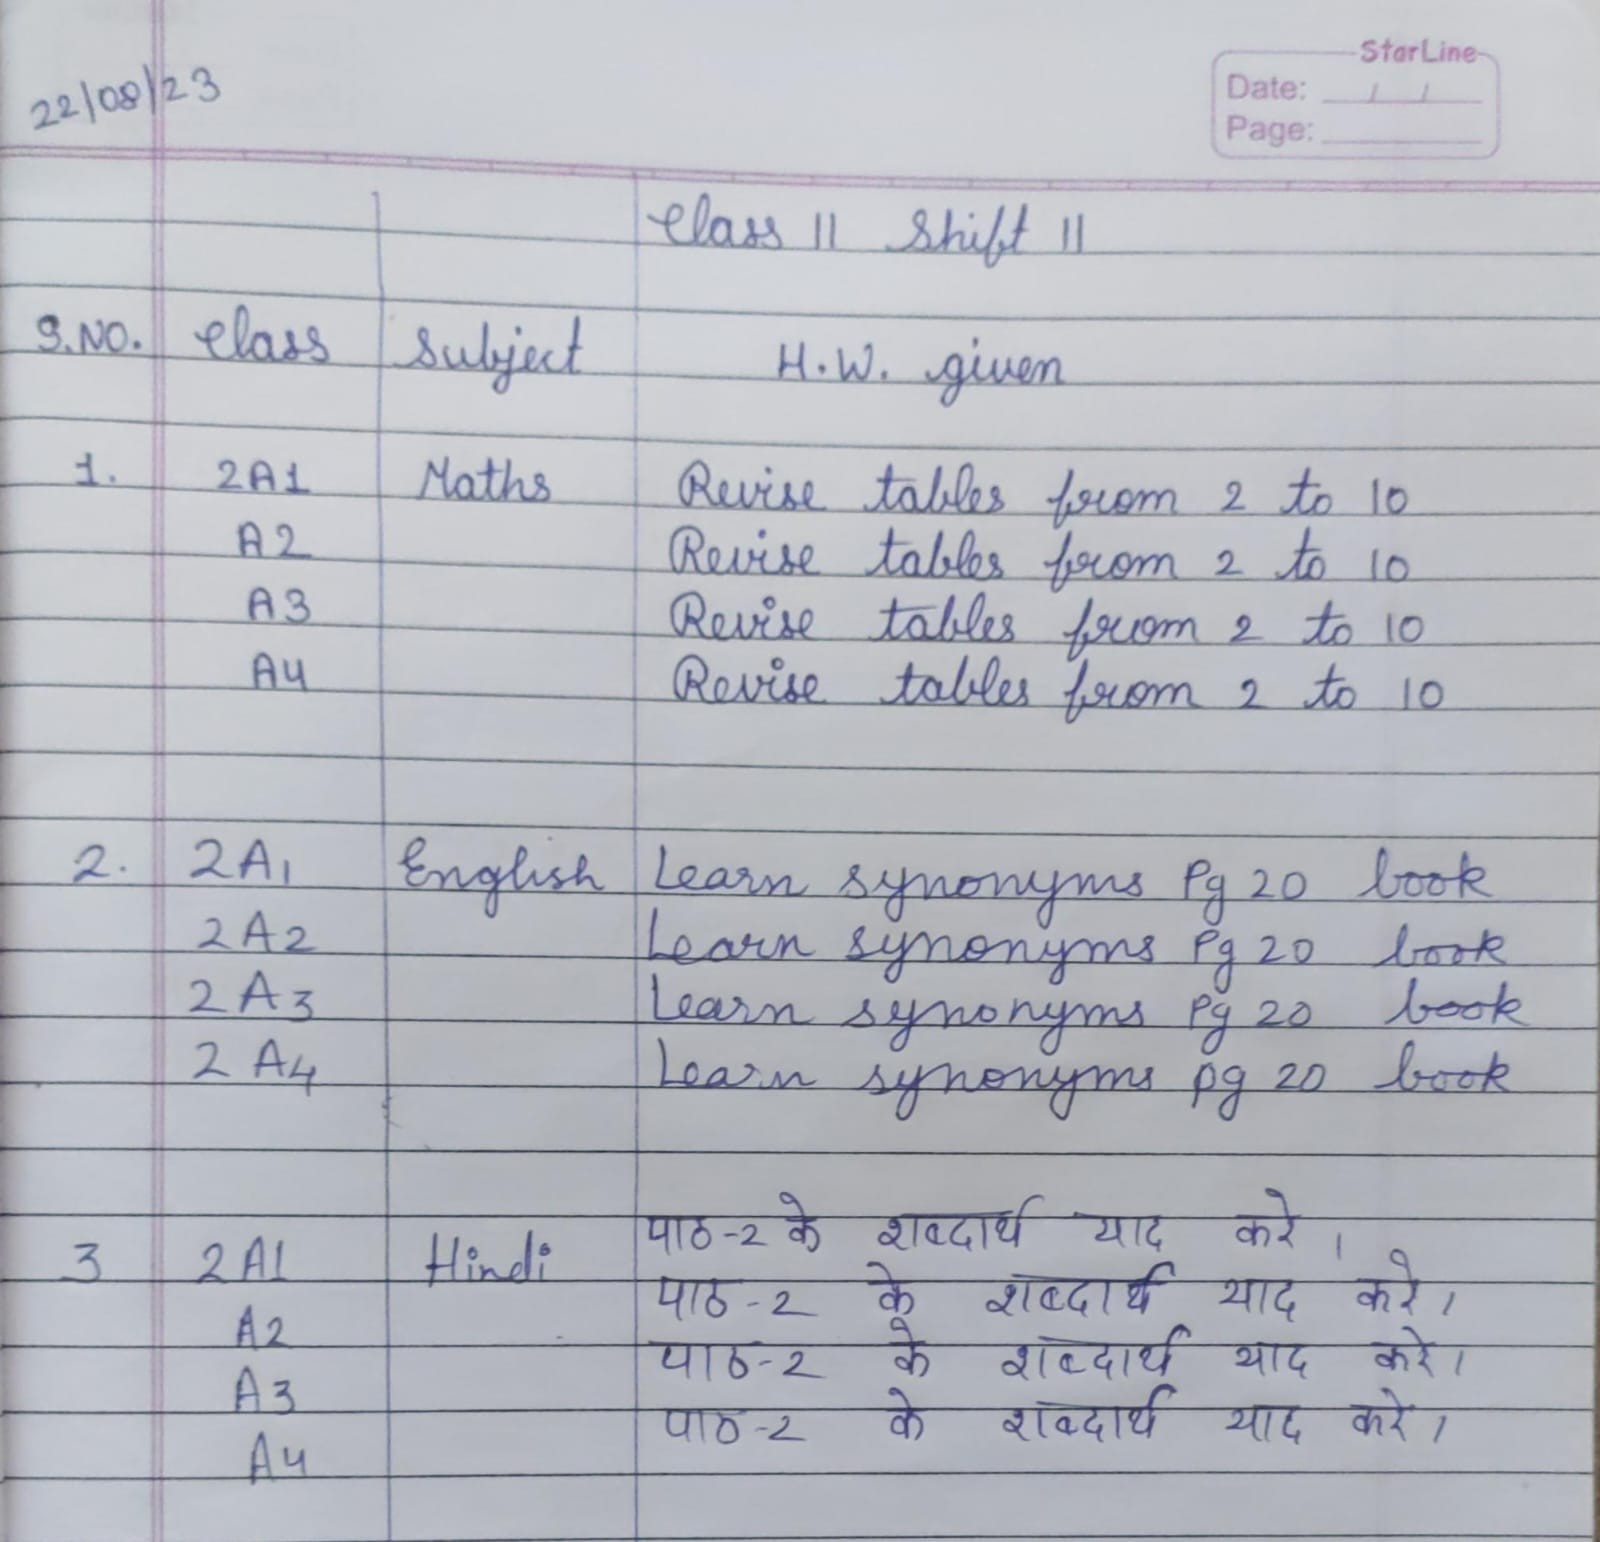 22/08/23
StarLine
Date: / /
Page:
Class II Shift II
S.NO. Class Subject H.W. given
1. 2A1 Maths Revise tables from 2 to 10
A2 Revise tables from 2 to 10
A3 Revise tables from 2 to 10
A4 Revise tables from 2 to 10
2. 2A1 English Learn synonyms Pg 20 book
2A2 Learn synonyms Pg 20 book
2A3 Learn synonyms Pg 20 book
2A4 Learn synonyms pg 20 book
3 2A1 Hindi पाठ-2 के शब्दार्थ याद करे।
A2 पाठ-2 के शब्दार्थ याद करे।
A3 पाठ-2 के शब्दार्थ याद करे।
A4 पाठ-2 के शब्दार्थ याद करे।